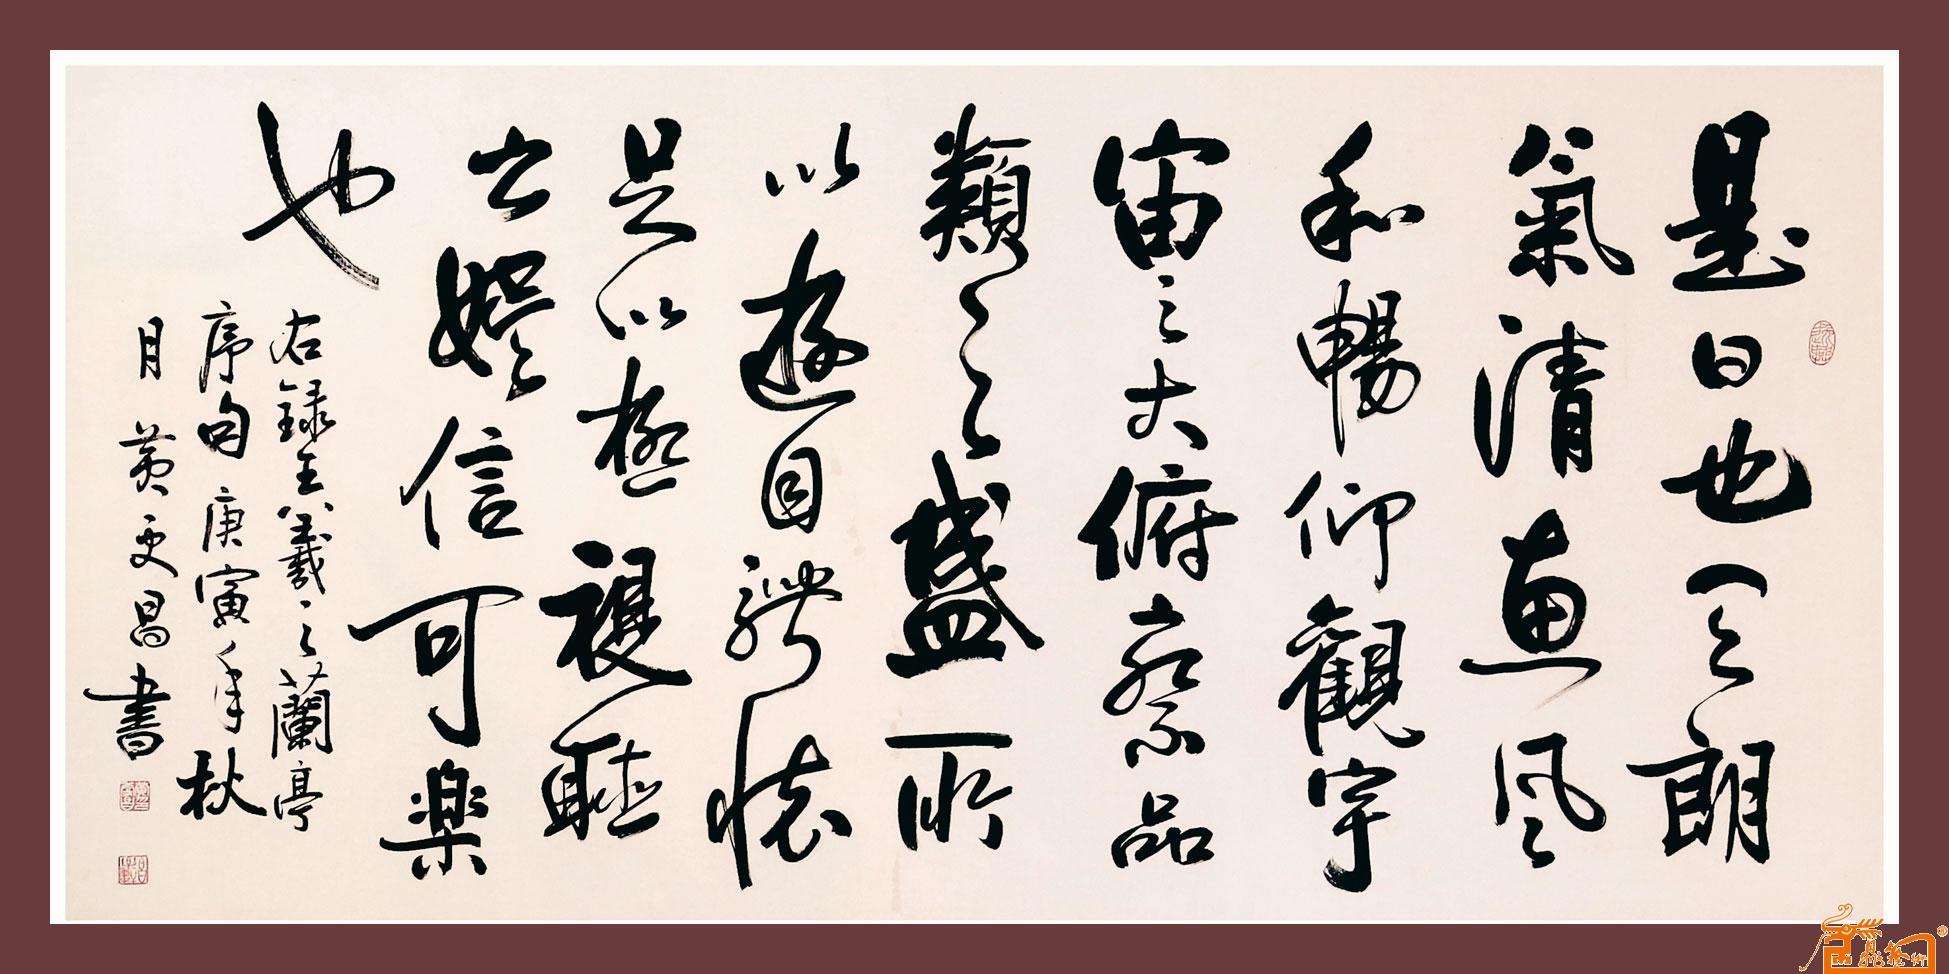 是日也天朗
氣清惠風
和暢仰觀宇
宙之大俯察品
類之盛所
以遊目骋懷
足以極視聽
之娛信可楽
也
右録王羲之蘭亭
序句庚寅年秋
月黄更昌書